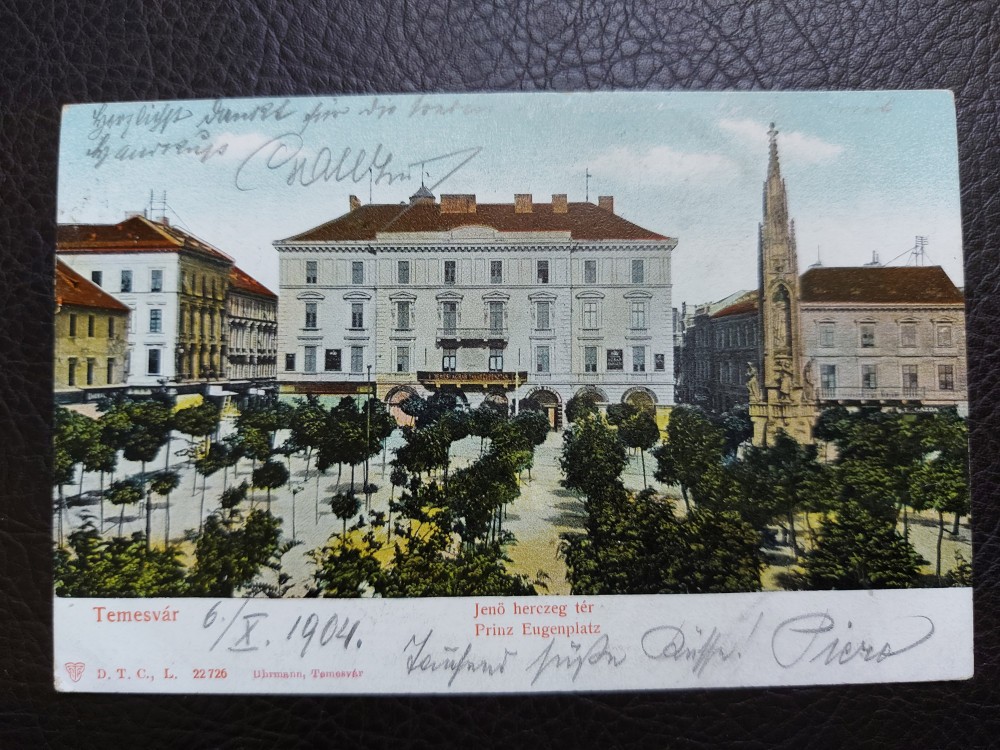 Herzlichst Dankt für die
Handkuss
Temesvár
6./X. 1904.
Jenö herczeg tér
Prinz Eugenplatz
Tausend süße Küsse! Piero
D. T. C., L. 22726
Uhrmann, Temesvár